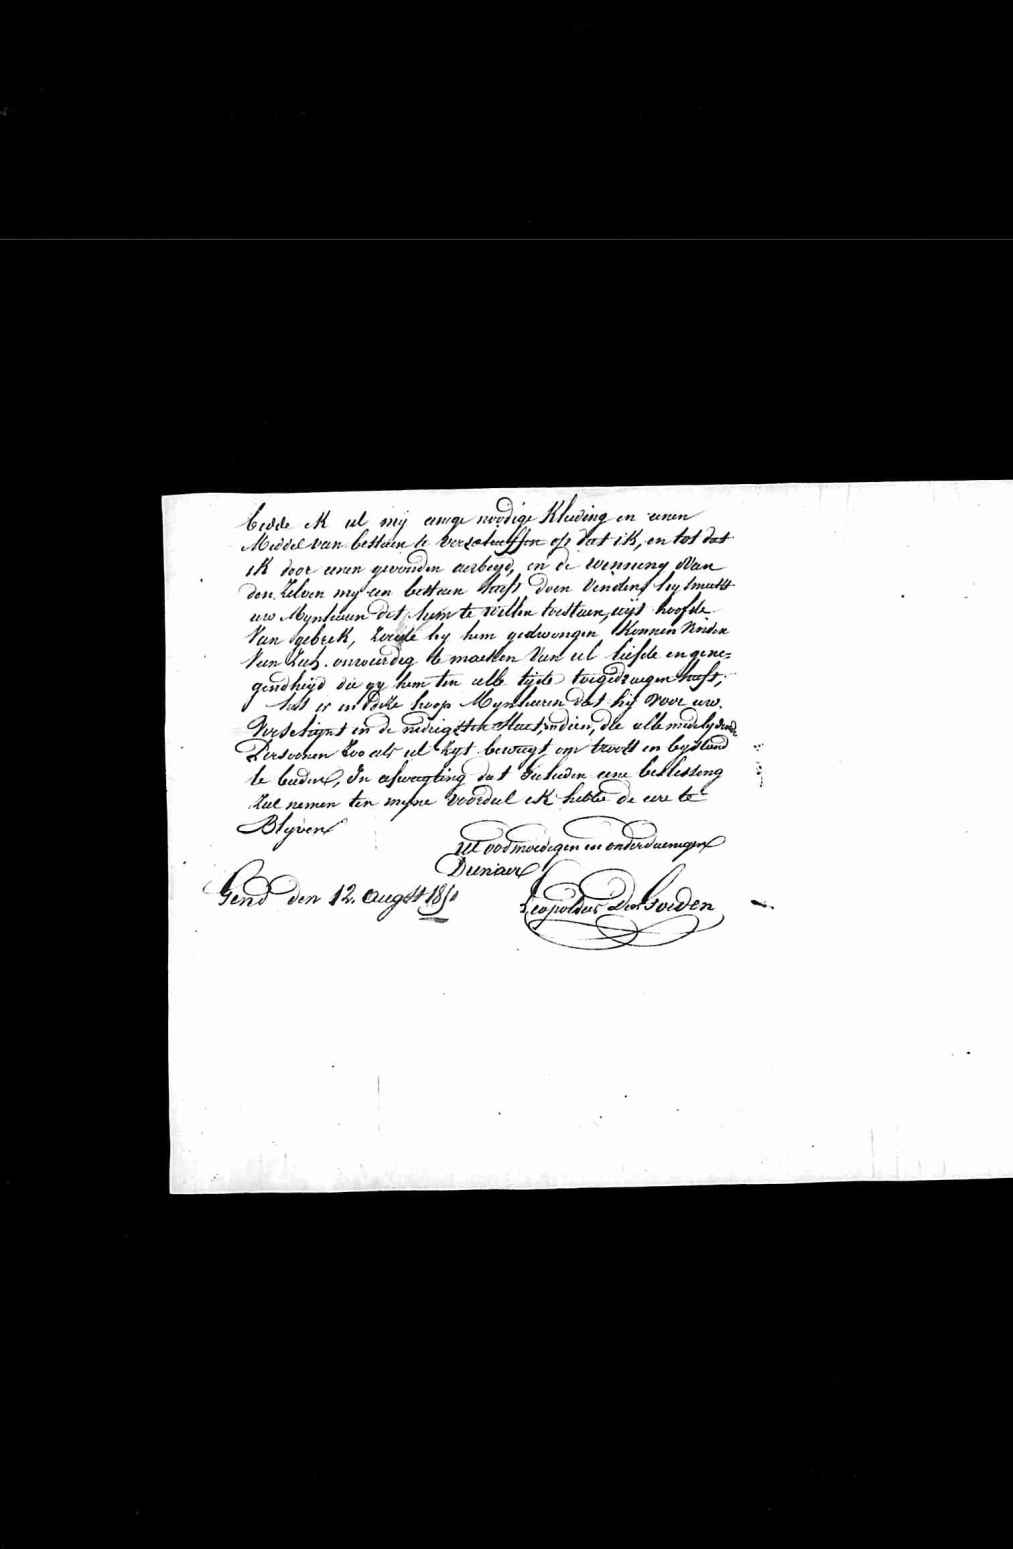 bidde ik ul mij eenige noodige kleeding en eenen
Middel van bestaen te verschaffen op dat ik, en tot dat
ik door eenen gevonden aerbeyd, en de winning van
den zelven mij een bestaen doen vinden, hij smeekt
uw Mynheeren dit hem te willen toestaen, uijt hoofde
van gebrek, hij hem gedwongen konnen vinden
van zich onwaerdig te maeken van ul liefde en gene=
gendheijd die gy hem ten alle tijde toegedraegen heeft,
het is in deze hoop Mynheeren dat hij voor uw
verschijnt in de nedrigsten staet, indien, die alle medelijdende
Persoonen zoo als ul zijt beweegt om troost en bijstand
te bieden, In afwagting dat Gulieden eene beslissing
zul nemen ten myne voordeel ik hebbe de eere te
Blyven
Ul oodmoedigen en onderdaenigen
Dienaer
Gend den 12. augst 1850
Leopoldus